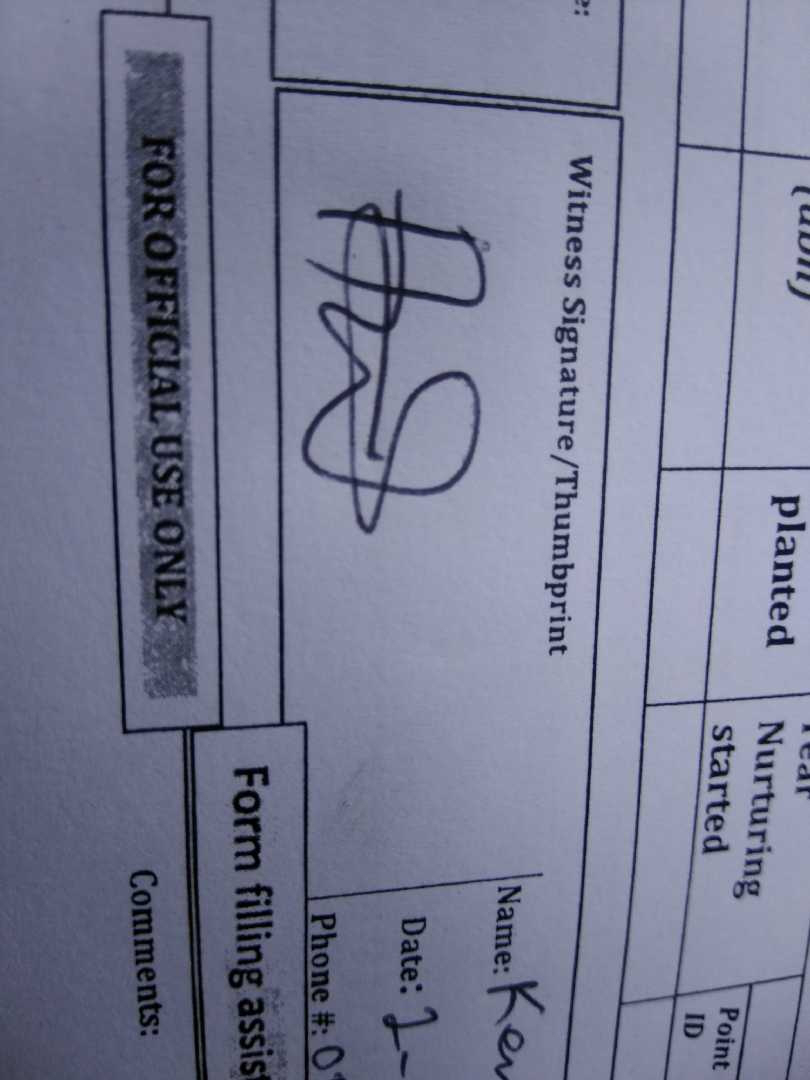 planted
Nurturing
started
Point
ID
Witness Signature/Thumbprint
Name:
Date:
Phone #:
FOR OFFICIAL USE ONLY
Form filling
Comments: